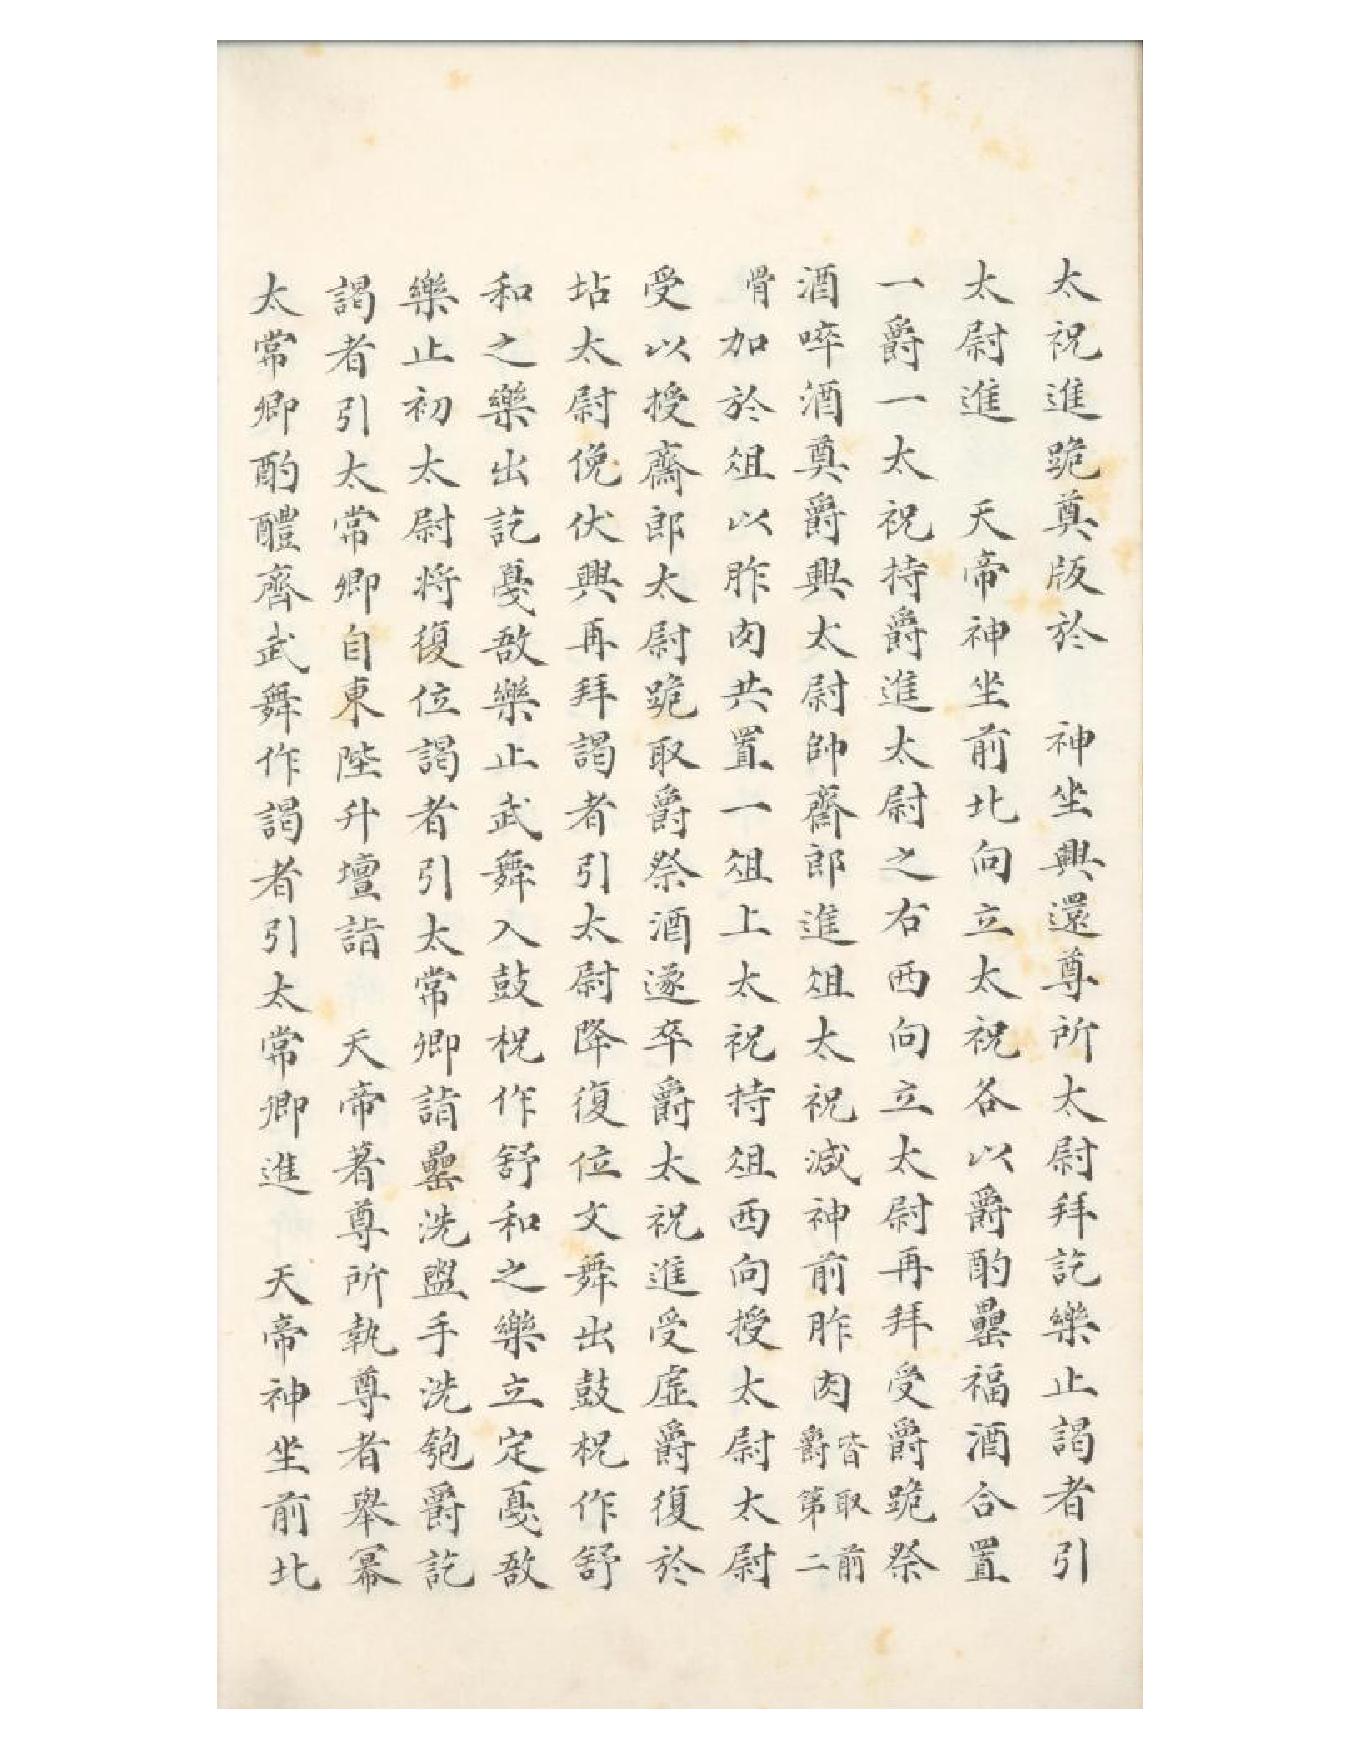 太祝進跪奠版於　神坐興還尊所太尉拜訖樂止謁者引
太尉進　天帝神坐前北向立太祝各以爵酌罍福酒合置
一爵一太祝持爵進太尉之右西向立太尉再拜受爵跪祭
酒啐酒奠爵興太尉帥齋郎進俎太祝減神前胙肉皆取前爵第二
骨加於俎以胙肉共置一俎上太祝持俎西向授太尉太尉
受以授齋郎太尉跪取爵祭酒遂卒爵太祝進受虛爵復於
坫太尉俛伏興再拜謁者引太尉降復位文舞出鼓柷作舒
和之樂出訖戞敔樂止武舞入鼓柷作舒和之樂立定戞敔
樂止初太尉将復位謁者引太常卿詣罍洗盥手洗匏爵訖
謁者引太常卿自東陛升壇詣　天帝著尊所執尊者舉冪
太常卿酌醴齊武舞作謁者引太常卿進　天帝神坐前北